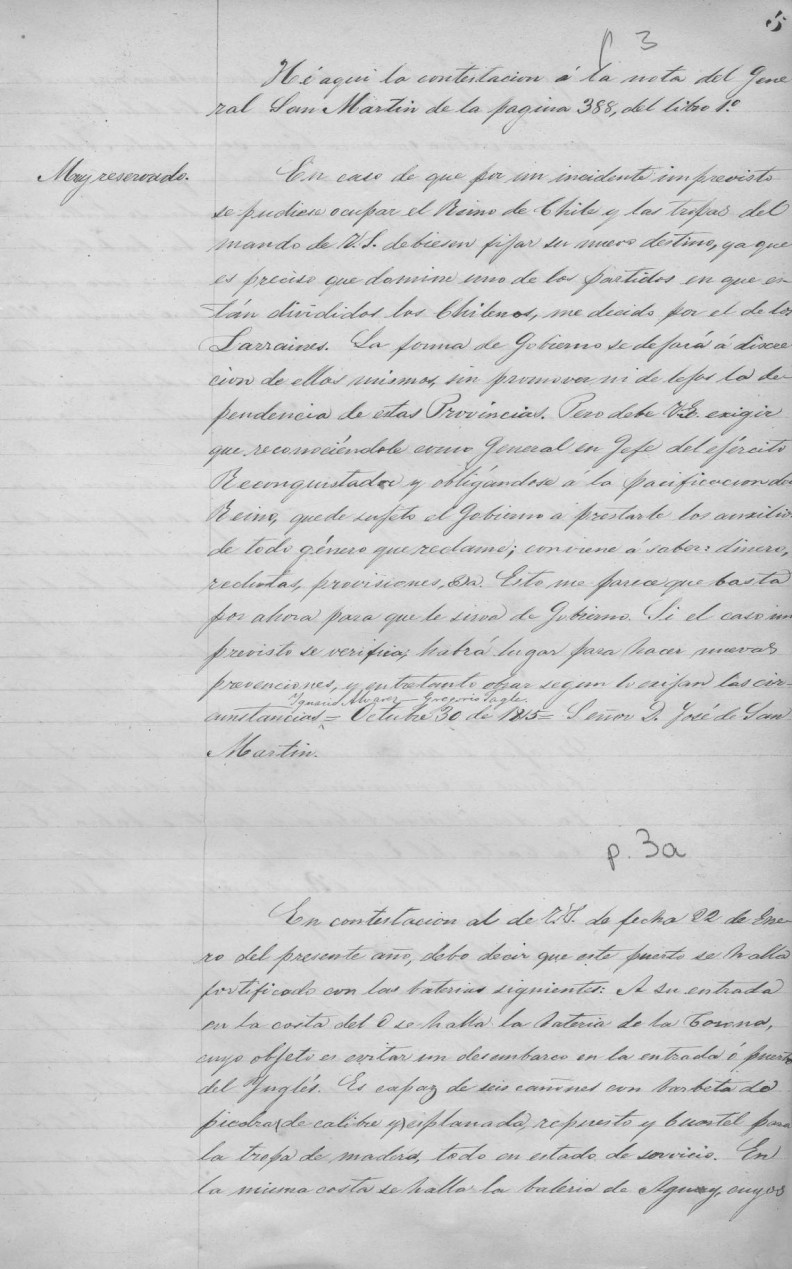 5
p 3
Hé aqui la contestacion á la nota del Gene
ral San Martin de la pagina 388, del libro 1º
Muy reservado.
En caso de que por un incidente imprevisto
se pudiese ocupar el Reino de Chile y las tropas del
mando de V.S. debiesen fijar su nuevo destino, ya que
es preciso que domine uno de los partidos en que es-
tán divididos los Chilenos, me decido por el de los
Larraines. La forma de Gobierno se dejará á discre
cion de ellos mismos, sin promover, ni de lejos la de-
pendencia de estas Provincias. Pero debe V.S. exigir
que reconociéndole como General en Jefe del ejército
Reconquistador y obligándose á la pacificacion del
Reino, quede sujeto el Gobierno a prestarle los auxilios
de todo género que reclame; conviene á saber: dinero,
reclutas, provisiones, &a. Esto me parece que basta
por ahora para que le sirva de Gobierno. Si el caso im
previsto se verifica, habrá lugar para hacer nuevas
prevenciones, y entretanto obrar segun lo exijan las cir-
Ignacio Alvarez — Gregorio Tagle.
cunstancias = Octubre 30 de 1815 = Señor D. José de San
Martin.
p. 3a
En contestacion al de V.S. de fecha 22 de Ene-
ro del presente año, debo decir que este puerto se halla
fortificado con las baterias siguientes: A su entrada
en la costa del O se halla la bateria de la Corona,
cuyo objeto es evitar un desembarco en la entrada ó puerto
del Inglés. Es capaz de seis cañones con barbeta de
piedra (de calibre y) esplanada, repuesto y Cuartel para
la tropa de madera, todo en estado de servicio. En
la misma costa se halla la bateria de Aguuy, cuyos